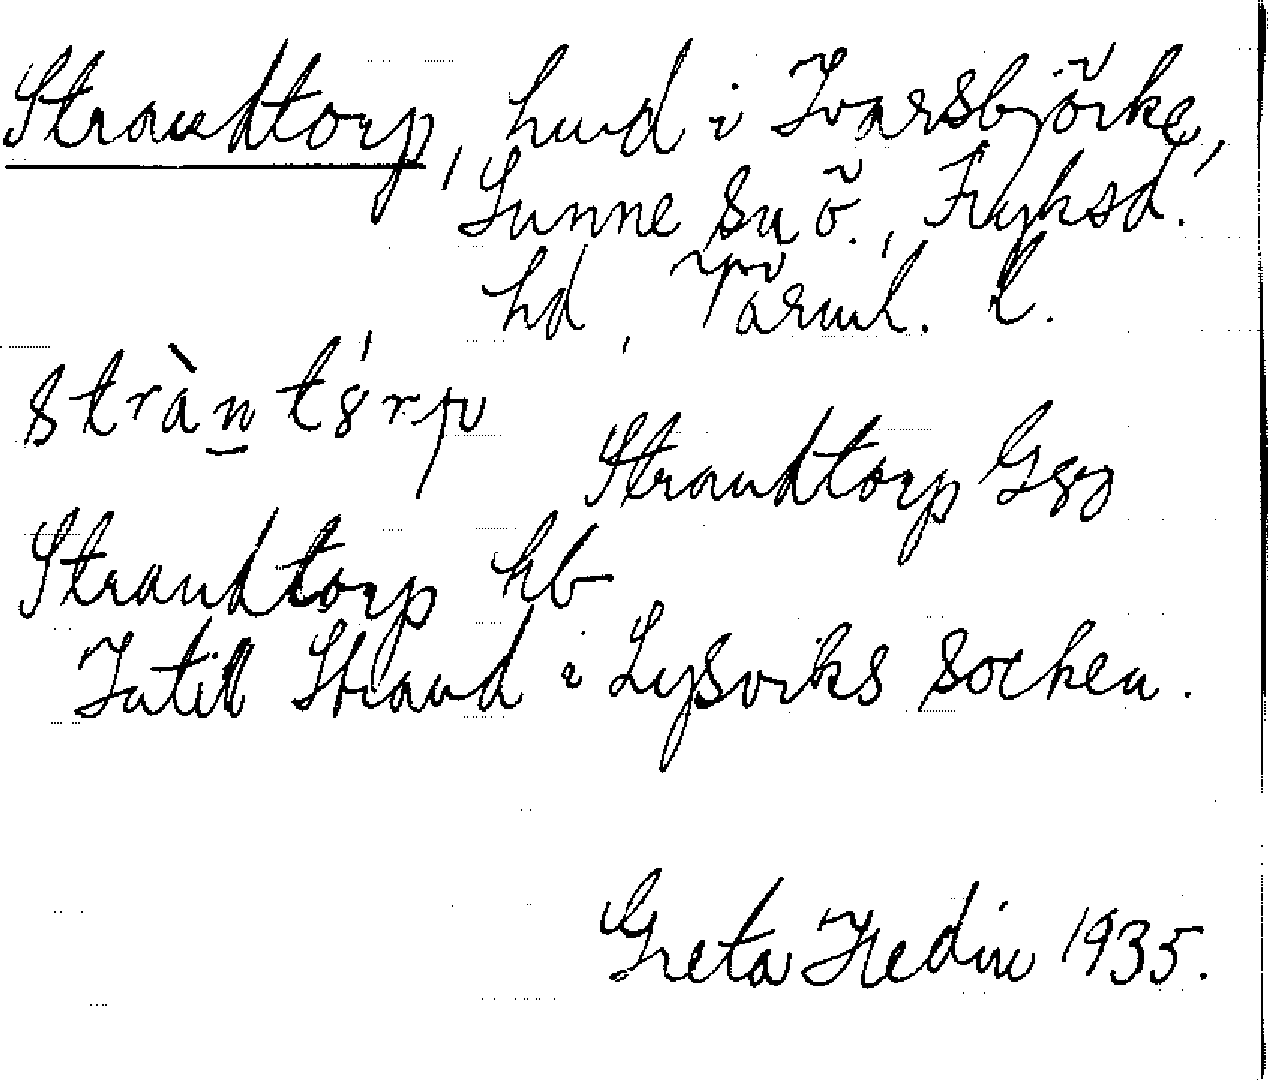 Strandtorp, hmd i Ivarsbjörke,
Sunne sn ö., Fryksd.
hd, Värml. l.
stràn tórp
Strandtorp Gsz
Strandtorp kb
Intill Strand i Lysviks socken.
Greta Hedin 1935.